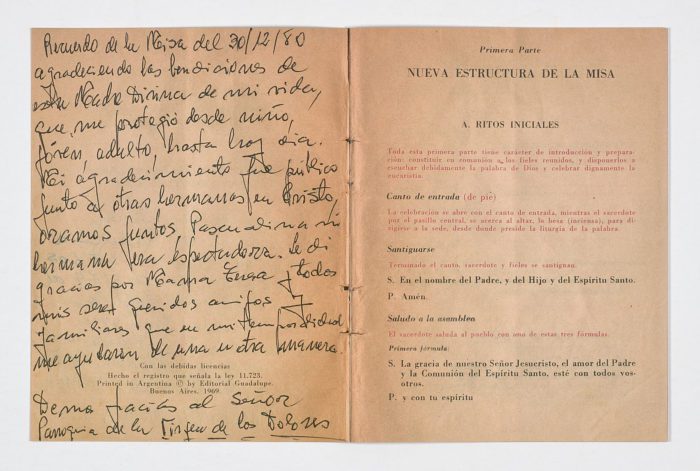 Recuerdo de la Misa del 30/12/80
agradeciendo las bendiciones de
esta Madre Divina de mi vida,
que me protegió desde niño,
jóven, adulto, hasta hoy día.
Mi agradecimiento fue público
junto a otras hermanas en Cristo,
oramos juntos, Pascualina mi
hermana era espectadora. Le di
gracias por Mamá Teresa y todos
mis seres queridos amigos y
familiares que en mi
me ayudaron de una u otra manera.
Con las debidas licencias
Hecho el registro que señala la ley 11.723.
Printed in Argentina © by Editorial Guadalupe.
Buenos Aires, 1969
Demos gracias al Señor
Parroquia de la Virgen de los Dolores
Primera Parte
NUEVA ESTRUCTURA DE LA MISA
A. RITOS INICIALES
Toda esta primera parte tiene carácter de introducción y prepara-
ción: constituir en comunión a los fieles reunidos, y disponerlos a
escuchar debidamente la palabra de Dios y celebrar dignamente la
eucaristía.
Canto de entrada (de pie)
La celebración se abre con el canto de entrada, mientras el sacerdote
por el pasillo central, se acerca al altar, lo besa (inciensa), para di-
rigirse a la sede, desde donde preside la liturgia de la palabra.
Santiguarse
Terminado el canto, sacerdote y fieles se santiguan.
S. En el nombre del Padre, y del Hijo y del Espíritu Santo.
P. Amén.
Saludo a la asamblea
El sacerdote saluda al pueblo con una de estas tres fórmulas.
Primera fórmula:
S. La gracia de nuestro Señor Jesucristo, el amor del Padre
y la Comunión del Espíritu Santo, esté con todos vos-
otros.
P. y con tu espíritu